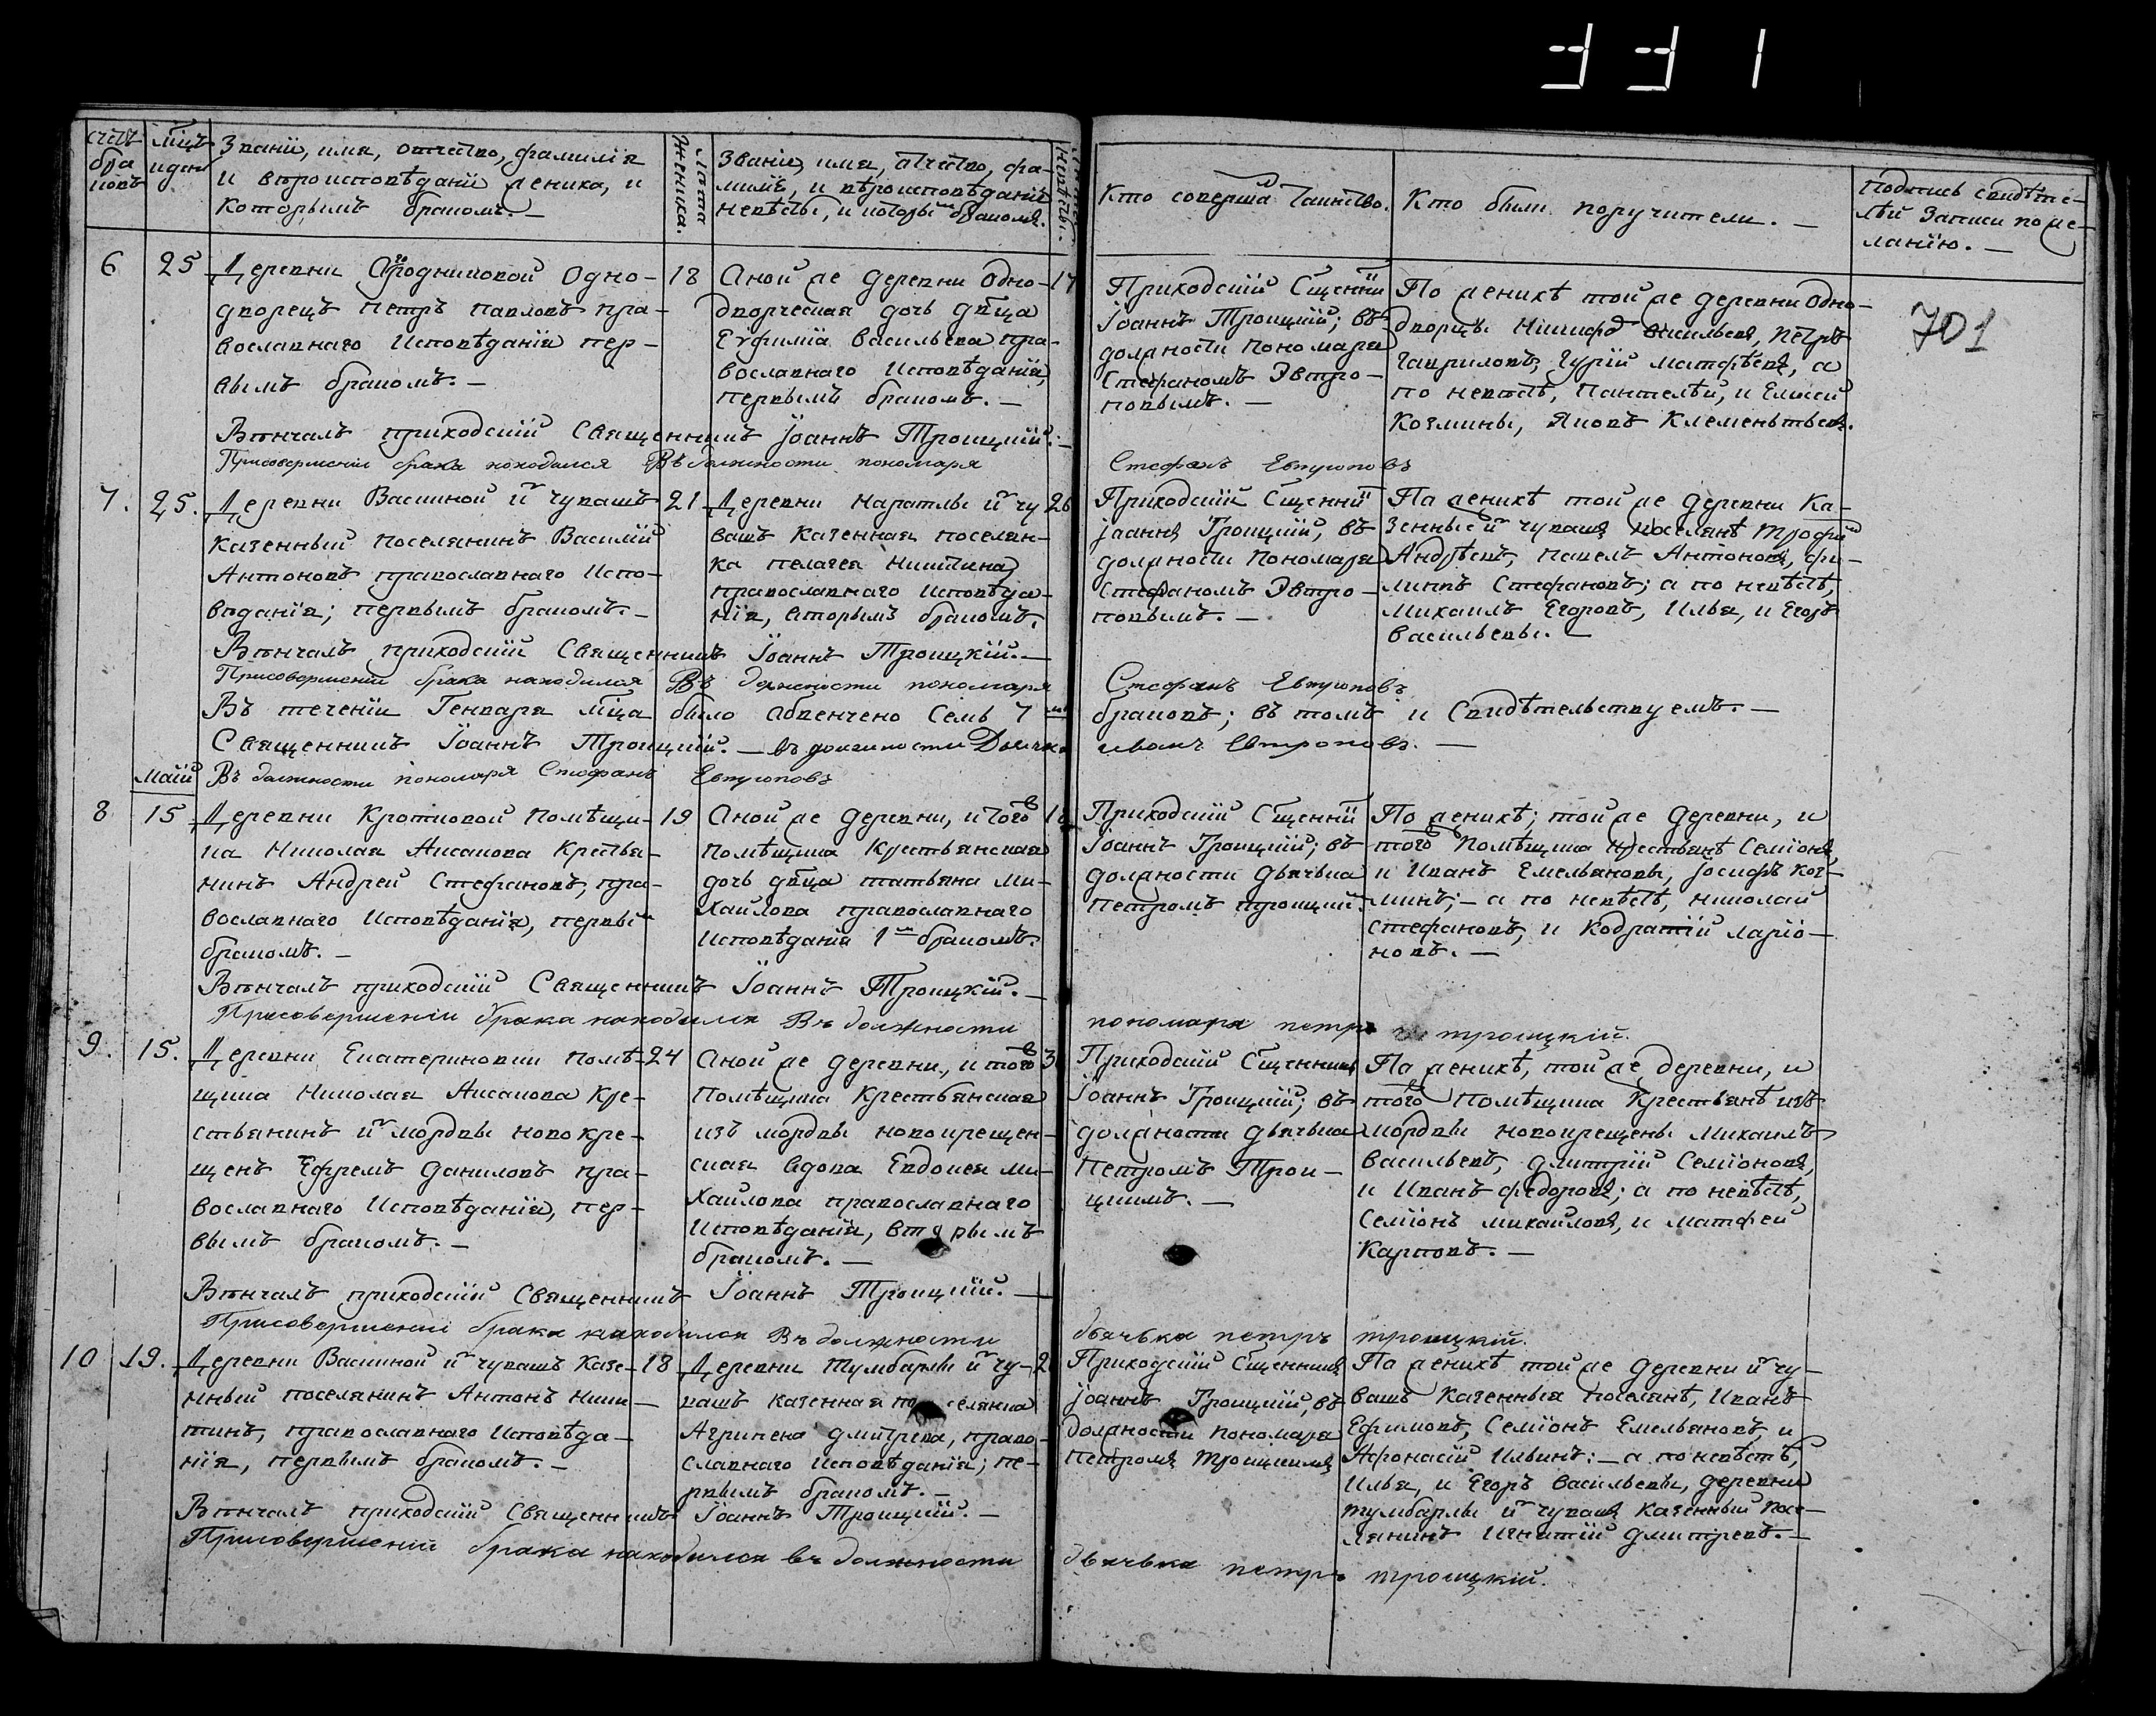 331
701
счетъ браковъ
мцъ и день
Званіе, имя, отчество, фамилія
и вѣроисповѣданіе жениха, и
которымъ бракомъ. —
Лѣта жениха.
Званіе, имя, отчество, фа-
милія, и вѣроисповѣданіе
невѣсты, и которымъ бракомъ.
невѣсты.
Кто соверша Таинство.
Кто были поручители. —
Подпись свидѣте-
лей Записи по же-
ланію. —
6
25
Деревни Одно-
дворецъ Петръ Павловъ пра-
вославнаго Исповѣданія пер-
вымъ бракомъ. —
18
Аной же деревни Одно-
дворческая дочь дѣвца
Евфимія Васильева пра-
вославнаго Исповѣданія,
первымъ бракомъ. —
17
Приходскій Сщенни
Іоаннъ Троицкій; въ
должности Пономаря
Стефаномъ Эвтро-
повымъ. —
По женихѣ той же деревни Одно-
дворцы Никифо Васильевъ, Петръ
Гавриловъ, Гурій Матфѣевъ, а
по невѣстѣ, Пантелѣй, и Елисей
Козмины, Яковъ Клементьевъ.
Вѣнчалъ приходскій Священникъ Іоаннъ Троицкій. —
Присовершеніи брака находился Въ должности пономаря Стефанъ Евтроповъ
7.
25.
Деревни Васькиной и чувашъ
Казенный поселянинъ Василий
Антоновъ православнаго Испо-
вѣданія; первымъ бракомъ. —
21
Деревни Наратлы и чу
вашъ Казенная поселян-
ка Пелагея Никитина
православнаго Исповѣда-
нія, вторымъ бракомъ.
26
Приходскій Сщенни
Іоаннъ Троицкій, въ
должности Пономаря
Стефаномъ Эвтро-
повымъ. —
Па женихѣ той же деревни Ка-
зенные и чувашъ поселянѣ Трофи
Андрѣевъ, Павелъ Антоновъ, Фи-
липпъ Стефановъ; а по невѣстѣ,
Михаилъ Егоровъ, Илья, и Егоръ
Васильевы.
Вѣнчалъ приходскій Священникъ Іоаннъ Троицкій. —
Присовершеніи брака находился Въ должности пономаря Стефанъ Евтроповъ
Въ теченіи Генваря мца было Абвенчено Семь 7 браковъ; въ томъ и Свидѣтельствуемъ. —
Священникъ Іоаннъ Троицкій. — въ должности Дьячка Иванъ Евтроповъ. —
Въ должности пономаря Стефанъ Евтроповъ
Маій
8
15
Деревни Кротковой Помѣщи-
ка Николая Аксакова Крестья-
нинъ Андрей Стефановъ, пра-
вославнаго Исповѣданія, первы
бракомъ. —
19
Аной же деревни, и того
Помѣщика Крестьянская
дочь дѣвца Татьяна Ми-
хайлова православнаго
Исповѣданія 1 бракомъ.
Приходскій Сщенни
Іоаннъ Троицкій; въ
должности дьячька
Петромъ троицки
По женихѣ; той же деревни, и
того Помѣщика Крестьянѣ Семіонъ,
и Иванъ Емельяновы, Іосифъ Коз-
минъ; — а по невѣстѣ, Николай
Стефановъ, и Кодратій Ларіо-
новъ. —
Вѣнчалъ приходскій Священникъ Іоаннъ Троицкій. —
Присовершеніи брака находился Въ должности пономаря петръ троицкій.
9.
15.
Деревни Екатериновки Помѣ-
щика Николая Аксакова Кре-
стьянинъ и мордвы новокре-
щенъ Ефремъ Даниловъ пра-
вославнаго Исповѣданія, пер-
вымъ бракомъ. —
24
Аной же деревни, и того
Помѣщика Крестьянская
изъ мордвы новокрещен-
ская вдова Евдокея Ми-
хайлова православнаго
Исповѣданія, вторымъ
бракомъ. —
Приходскій Сщенникъ
Іоаннъ Троицкій; въ
должности дьячька
Петромъ Трои-
цкимъ. —
Па женихѣ, той же деревни, и
того Помѣщика Крестьянѣ изъ
мордвы новокрещены Михаилъ
Васильевъ, Дмитрій Семіоновъ,
и Иванъ Федоровъ; а по невѣстѣ,
Семіонъ Михайловъ, и Матфей
Карповъ. —
Вѣнчалъ приходскій Священникъ Іоаннъ Троицкій. —
Присовершеніи брака находился Въ должности дьячька петръ троицкій.
10
19.
Деревни Васькиной и чувашъ Казе-
нный поселянинъ Антонъ Ники-
тинъ, православнаго Исповѣда-
нія, первымъ бракомъ. —
18
Деревни Тумбарлы и чу-
вашъ казенная поселянка
Агрипена Дмитрева, право-
славнаго Исповѣданія; пе-
рвымъ бракомъ. —
Приходскій Сщенникъ
Іоаннъ Троицкій, въ
должности Пономаря
Петромъ Троицкимъ
Па женихѣ той же деревни и чу-
вашъ Казенныя поселянѣ, Иванъ
Ефимовъ, Семіонъ Емельяновъ, и
Афонасій Ильинъ: — а по невѣстѣ,
Илья, и Егоръ Васильевы, деревни
Тумбарлы и чувашъ казенный посе-
лянинъ Игнатій Дмитревъ. —
Вѣнчалъ приходскій Священникъ Іоаннъ Троицкій. —
Присовершеніи брака находился въ должности дьячька петръ троицкій.